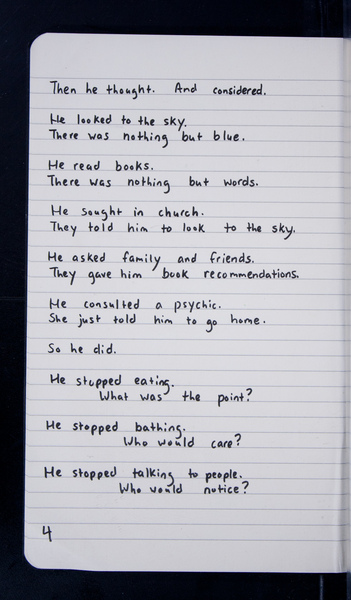 Then he thought. And considered.
He looked to the sky.
There was nothing but blue.
He read books.
There was nothing but words.
He sought in church.
They told him to look to the sky.
He asked family and friends.
They gave him book recommendations.
He consulted a psychic.
She just told him to go home.
So he did.
He stopped eating.
What was the point?
He stopped bathing.
Who would care?
He stopped talking to people.
Who would notice?
4